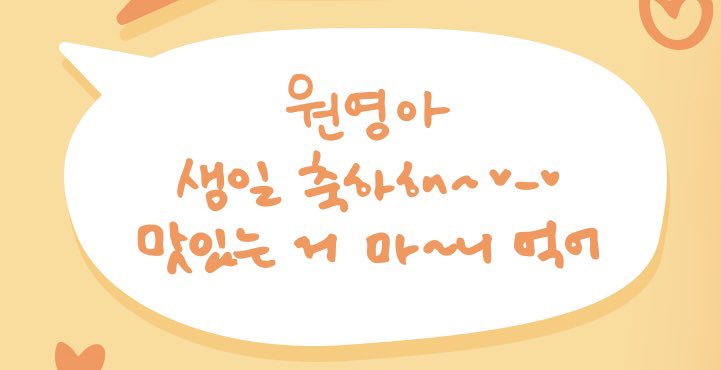 원영아
생일 축하해~ ♥_♥
맛있는 거 마~니 먹어